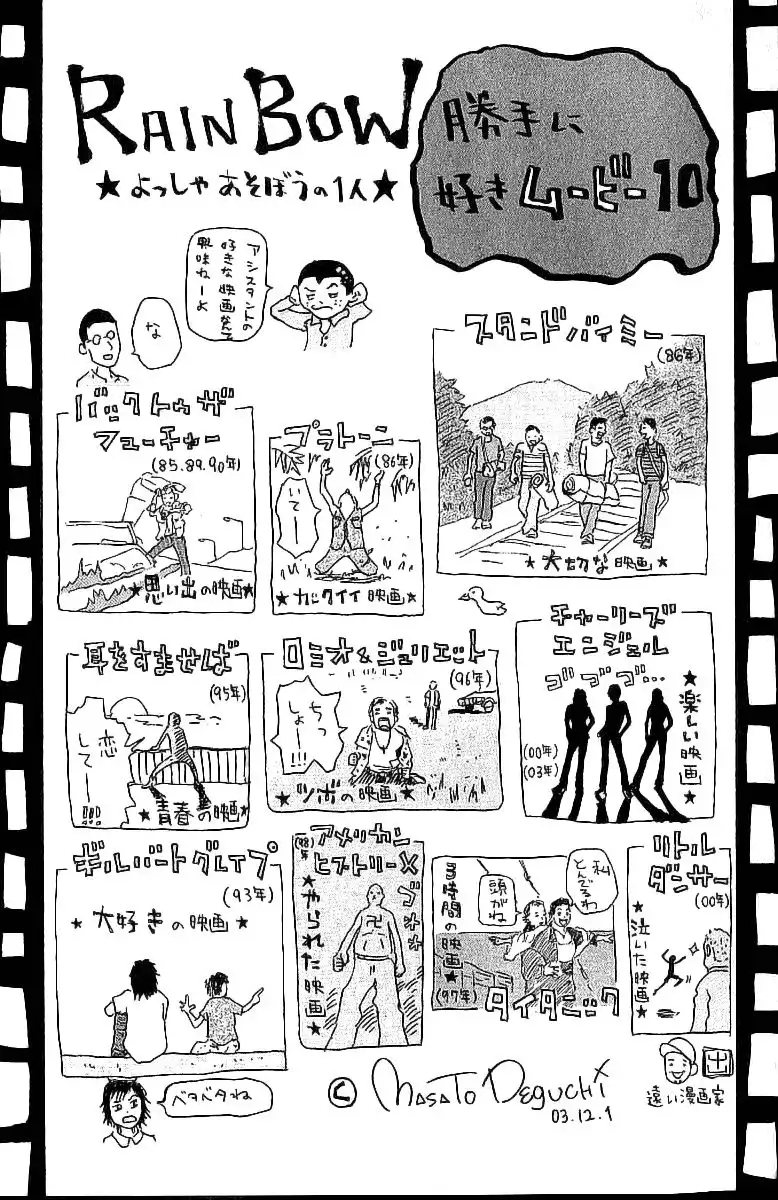 RAINBOW
★よっしゃあそぼうの1人★
勝手に
好きムービー10
アシスタントの
好きな映画なんて
興味ねーよ
な
スタンドバイミー
(86年)
★大切な映画★
バックトゥザ
フューチャー
(85.89.90年)
★思い出の映画★
プラトーン
(86年)
いてーー
★カックイイ映画★
耳をすませば
(95年)
恋
してー!!!
★青春の映画★
ロミオ&ジュリエット
(96年)
ちっ
しょー!!!
★ツボの映画★
チャーリーズ
エンジェル
ゴゴゴ…
(00年)
(03年)
★楽しい映画★
ギルバートグレイプ
(93年)
★大好きの映画★
アメリカン
ヒストリーX
(98年)
ゴォォ
★やられた映画★
私
とんでるわ
頭がね
3時間の映画★
(97年)
タイタニック
リトル
ダンサー
(00年)
★泣いた映画★
ベタベタね
© MASATO DEGUCHI
03.12.1
出
遠い漫画家